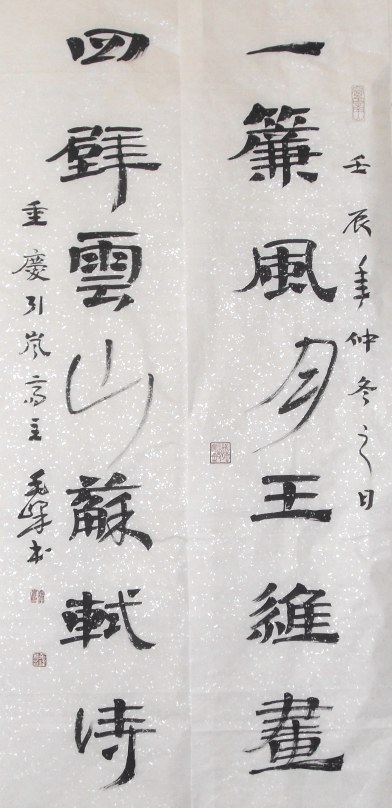 壬辰年仲冬之日
一簾風月王維畫
四壁雲山蘇軾诗
重慶引嵐斋主